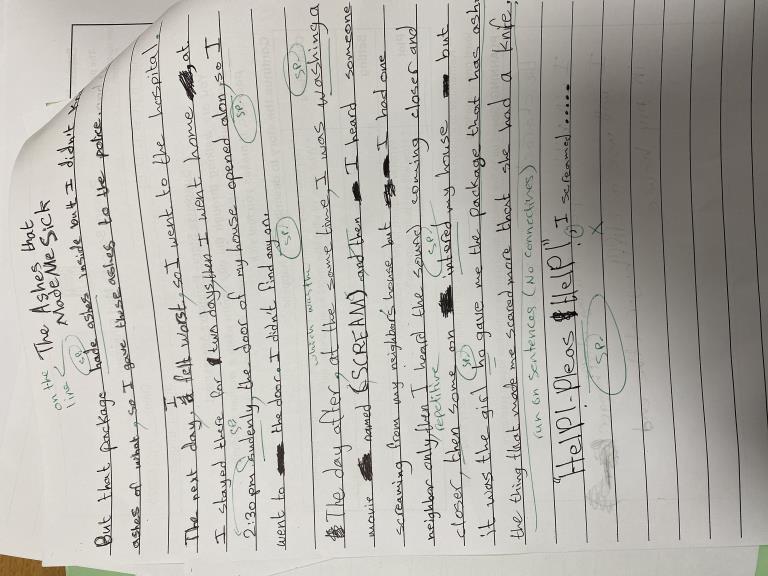 The Ashes that
Made Me Sick
on the
line
sp.
But that package hade ashes inside but I didn't
ashes of what, so I gave these ashes to the police.
The next day, I felt worst, so I went to the hospital.
I stayed there for two days then I went home, at
sp.
2:30 pm sudenly, the door of my house opened alon, so I
sp.
went to the door, I didn't find any on.
sp.
which was the
sp.
The day after, at the same time, I was washing a
movie named (SCREAM) and then I heard someone
screaming from my neighbors house but I had one
neighbor only, then I heard the sound coming closer and
repetitive
sp.
closer, then some on intered my house but
sp.
it was the girl ho gave me the package that has ash
the thing that made me scared more that she had a knife,
run on sentences (No connectives)
"HelP!. Pleas HelP!" I screamed.....
x
sp.